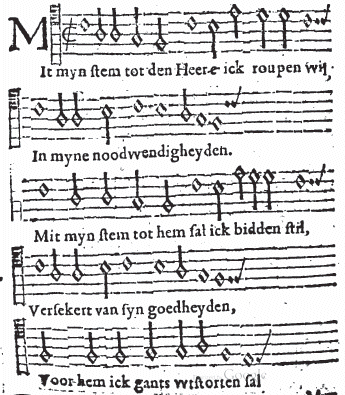 MIt myn ſtem tot den Heere ick roupen wil,
In myne noodwendigheyden.
Mit myn ſtem tot hem ſal ick bidden ſtil,
Verſekert van ſyn goedheyden,
Voor hem ick gants wtſtorten ſal